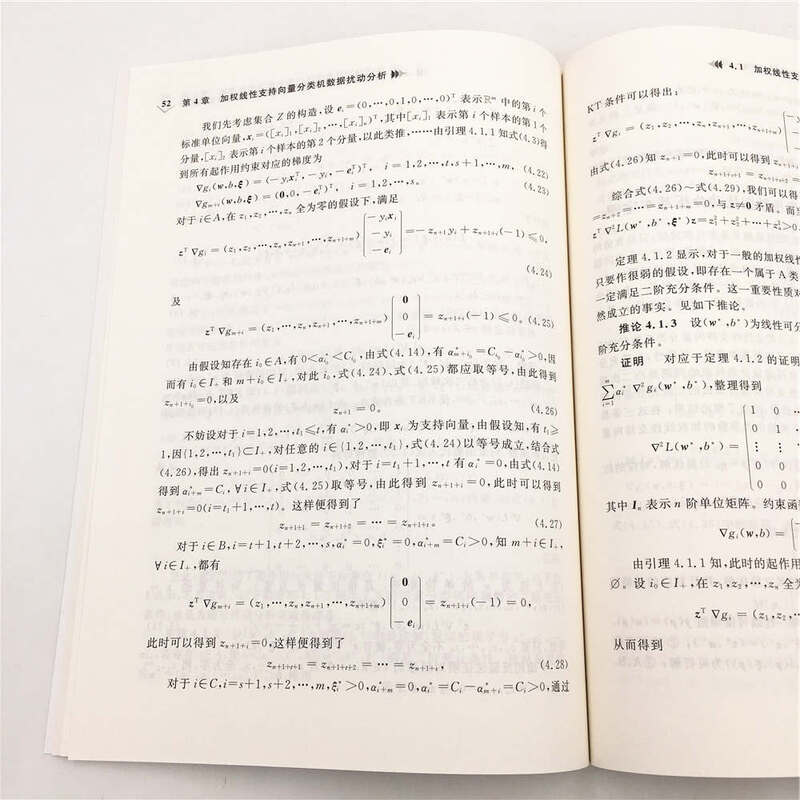 52 第4章 加权线性支持向量分类机数据扰动分析
我们先考虑集合 Z 的构造,设 eᵢ=(0,⋯,0,1,0,⋯,0)ᵀ 表示 ℝᵐ 中的第 i 个
标准单位向量,xᵢ=([xᵢ]₁,[xᵢ]₂,⋯,[xᵢ]ₙ)ᵀ,其中[xᵢ]₁ 表示第 i 个样本的第 1 个
分量,[xᵢ]₂ 表示第 i 个样本的第 2 个分量,以此类推,⋯⋯由引理 4.1.1 知式(4.3)得
到所有起作用约束对应的梯度为
∇gᵢ(w,b,ξ)=(−yᵢxᵢᵀ,−yᵢ,−eᵢᵀ)ᵀ, i=1,2,⋯,t,s+1,⋯,m, (4.22)
∇gₘ₊ᵢ(w,b,ξ)=(0,0,−eᵢᵀ)ᵀ, i=1,2,⋯,s。 (4.23)
对于 i∈A,在 z₁,z₂,⋯,zₙ 全为零的假设下,满足
zᵀ∇gᵢ=(z₁,⋯,zₙ,zₙ₊₁,⋯,zₙ₊₁₊ₘ)[−yᵢxᵢ −yᵢ −eᵢ]=−zₙ₊₁yᵢ+zₙ₊₁₊ᵢ(−1)≤0,
(4.24)
及
zᵀ∇gₘ₊ᵢ=(z₁,⋯,zₙ,zₙ₊₁,⋯,zₙ₊₁₊ₘ)[0 0 −eᵢ]=zₙ₊₁₊ᵢ(−1)≤0。 (4.25)
由假设知存在 i₀∈A,有 0<α*ᵢ₀<Cᵢ₀,由式(4.14),有 α*ₘ₊ᵢ₀=Cᵢ₀−α*ᵢ₀>0,因
而有 i₀∈I₊ 和 m+i₀∈I₊,对此 i₀,式(4.24)、式(4.25)都应取等号,由此得到
zₙ₊₁₊ᵢ₀=0,以及
zₙ₊₁=0。 (4.26)
不妨设对于 i=1,2,⋯,t₁≤t,有 αᵢ*>0,即 xᵢ 为支持向量,由假设知,有 t₁≥
1,因{1,2,⋯,t₁}⊂I₊,对任意的 i∈{1,2,⋯,t₁},式(4.24)以等号成立,结合式
(4.26),得出 zₙ₊₁₊ᵢ=0(i=1,2,⋯,t₁),对于 i=t₁+1,⋯,t 有 αᵢ*=0,由式(4.14)
得到 α*ᵢ₊ₘ=Cᵢ,∀i∈I₊,式(4.25)取等号,由此得到 zₙ₊₁₊ᵢ=0,此时可以得到
zₙ₊₁₊ᵢ=0(i=t₁+1,⋯,t)。这样便得到了
zₙ₊₁₊₁=zₙ₊₁₊₂=⋯=zₙ₊₁₊ₜ。 (4.27)
对于 i∈B,i=t+1,t+2,⋯,s,αᵢ*=0,ξᵢ*=0,α*ᵢ₊ₘ=Cᵢ>0,知 m+i∈I₊,
∀i∈I₊,都有
zᵀ∇gₘ₊ᵢ=(z₁,⋯,zₙ,zₙ₊₁,⋯,zₙ₊₁₊ₘ)[0 0 −eᵢ]=zₙ₊₁₊ᵢ(−1)=0,
此时可以得到 zₙ₊₁₊ᵢ=0,这样便得到了
zₙ₊₁₊ₜ₊₁=zₙ₊₁₊ₜ₊₂=⋯=zₙ₊₁₊ₛ, (4.28)
对于 i∈C,i=s+1,s+2,⋯,m,ξᵢ*>0,α*ᵢ₊ₘ=0,αᵢ*=Cᵢ−α*ₘ₊ᵢ=Cᵢ>0,通过
4.1 加权线性支
KT 条件可以得出:
zᵀ∇gᵢ=(z₁,z₂,⋯,zₙ,zₙ₊₁,⋯,zₙ₊₁₊ₘ)
由式(4.26)知 zₙ₊₁=0,此时可以得到 zₙ₊
zₙ₊₁₊ₛ₊₁=zₙ₊₁₊ₛ₊₂=
综合式(4.26)~式(4.29),我们可以得
=zₙ₊₂=⋯=zₙ₊₁₊ₘ=0,与 z≠0 矛盾。而当
zᵀ∇²L(w*,b*,ξ*)z=z₁²+z₂²+⋯+zₙ²>0
定理 4.1.2 显示,对于一般的加权线性
只要作很弱的假设,即存在一个属于 A 类
一定满足二阶充分条件。这一重要性质对
然成立的事实。见如下推论。
推论 4.1.3 设(w*,b*)为线性可分
阶充分条件。
证明 对应于定理 4.1.2 的证明
∑αᵢ*∇²gᵢ(w*,b*),整理得到
∇²L(w*,b*)=[1 0 ⋯ 0 1 ⋯ ⋮ ⋮ 0 0 ⋯ 0 0 ⋯
其中 Iₙ 表示 n 阶单位矩阵。约束函
∇gᵢ(w,b)=
由引理 4.1.1 知,此时的起作用
∅。设 i₀∈I₊,在 z₁,z₂,⋯,zₙ 全为
zᵀ∇gᵢ=(z₁,z₂,⋯
从而得到